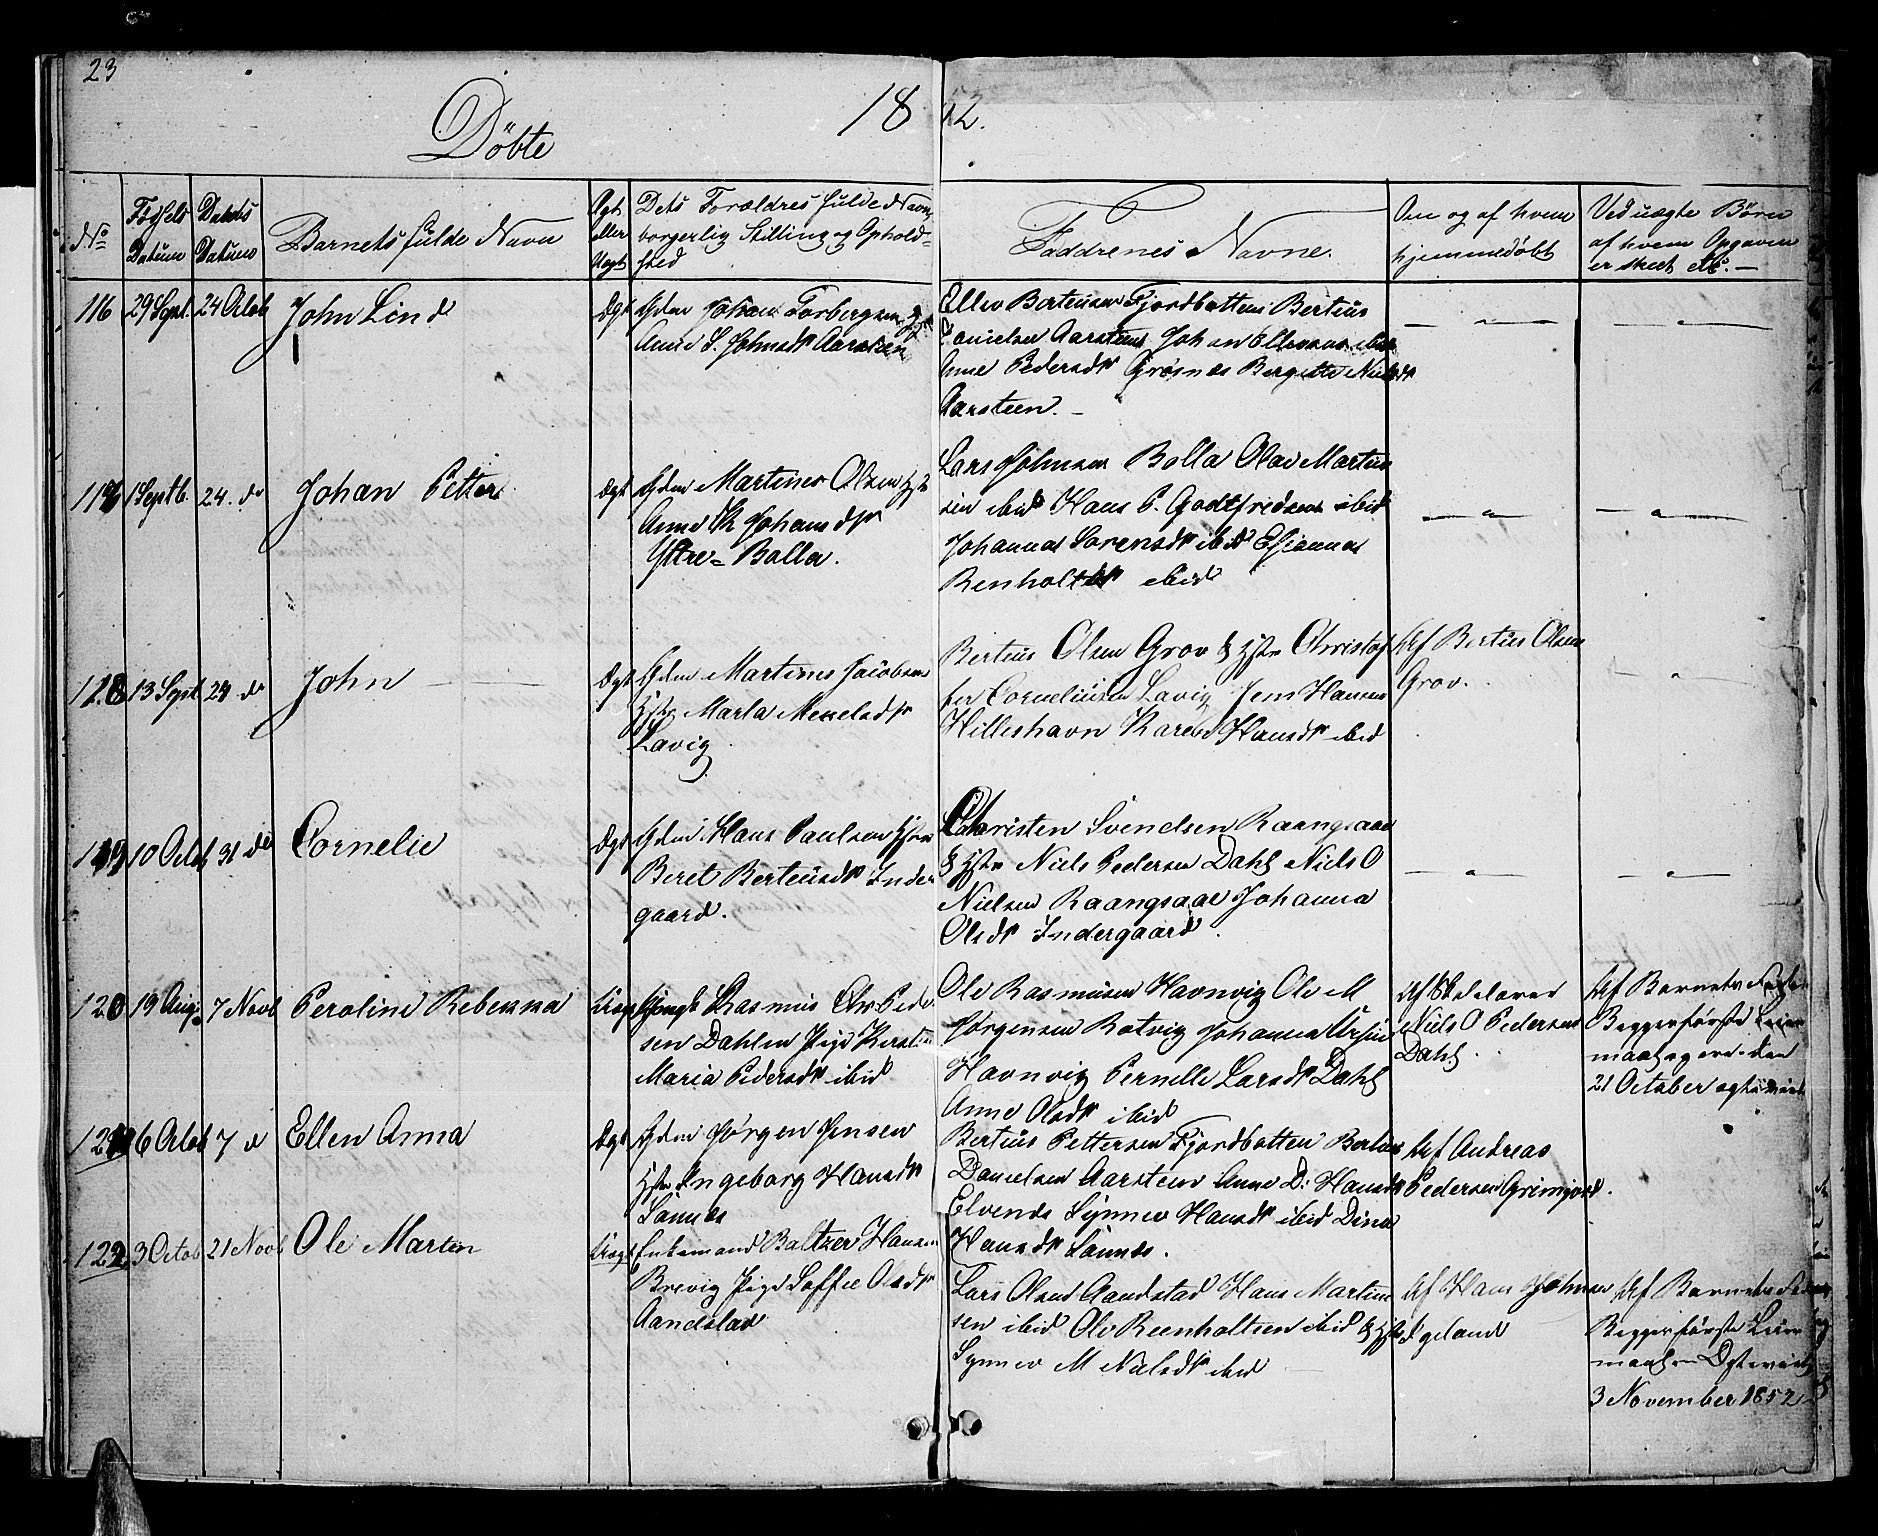 23
Döbte
18 52.
No
Fødsels Datum
Daabs Datum
Barnets fulde Navn
Ægte eller Uægte
Dets Forældres fulde Navn,
borgerlig Stilling og Ophold-
sted
Faddrenes Navne.
Om og af hvem
hjemmedøbt
Ved uægte Børn
af hvem Opgaven
er skeet etc. —
116 29 Sept. 24 Octob John Lind Ægt Gdm Johan Torbergsen
Anne S. Johnsdr Aarsteen
Ellev Berteusen Fjordbotten Berteus
Danielsen Aarsteen Johan Ellevsen ibid
Anne Pedersdr Grøsnes Bergitte Nielsdr
Aarsteen. —
117 1 Septb. 24. do Johan Petter Ægt Gdm Martines Olsen Hstr
Anne K Johansdr
Yttre-Bolla.
Lars Johnsen Bolla Olav Martin
sen ibid Hans P. Godtfredsen ibid
Johanna Sorensdr ibid Elianna
Renholtdr ibid
118 13 Sept 24 do John Ægt Gdm Martines Jacobsen
Hstr Marta Mikelsdr
Lavig
Berteus Olsen Grov & Hstr Christof
fer Corneliussen Lavig Jens Hansen
Hilleshavn Karen Hansdr ibid
Af Berteus Olsen
Grov.
119 10 Octob 31 do Cornelie Ægt Gdm Hans Paulsen Hstr
Beret Berteusdr Inder
gaard.
Christen Svendsen Raangsaae
& Hstr Niels Pedersen Dahl Niels O
Nielsen Raangsaae Johanna
Olsdr Indergaard.
120 19 Aug. 7 Novb Peroline Rebekka Uægt Ungk Rasmus Chr Peder
sen Dahlen Pige Kirsten
Maria Pedersdr ibid
Ole Rasmusen Havnvig Ole M
Jørgensen Rotvig Johanna
Havnvig Pernelle Larsdr Dahl
Anne Olsdr ibid
Af Skolelærer
Niels O Pedersen
Dahl.
Af Barnets Fader
Begges første Leier
maal den
21 October
121 6 Octob 7 d Ellen Anna Ægt Gdm Jørgen Jensen
Hstr Ingeborg Hansdr
Sannes
Berteus Pettersen Fjordbotten Berteus
Danielsen Aarsteen Anne D. Hansdr
Elvenes Synnev Hansdr ibid Dina
Hansdr Sannes.
Af Andreas
Pedersen Grimjord.
122 3 Octob 21 Novb Ole Marten Uægt Enkemand Baltzer Hansen
Brevig Pige Soffie Olsdr
Aandstad
Lars Olsen Aandstad Hans Martin
sen ibid Ole Reenholtsen ibid & Hstr
Synnev M Nielsdr ibid
Af Hans Johnsen
Af Barnets Fader
Begges første Leier
maal
3 November 1852